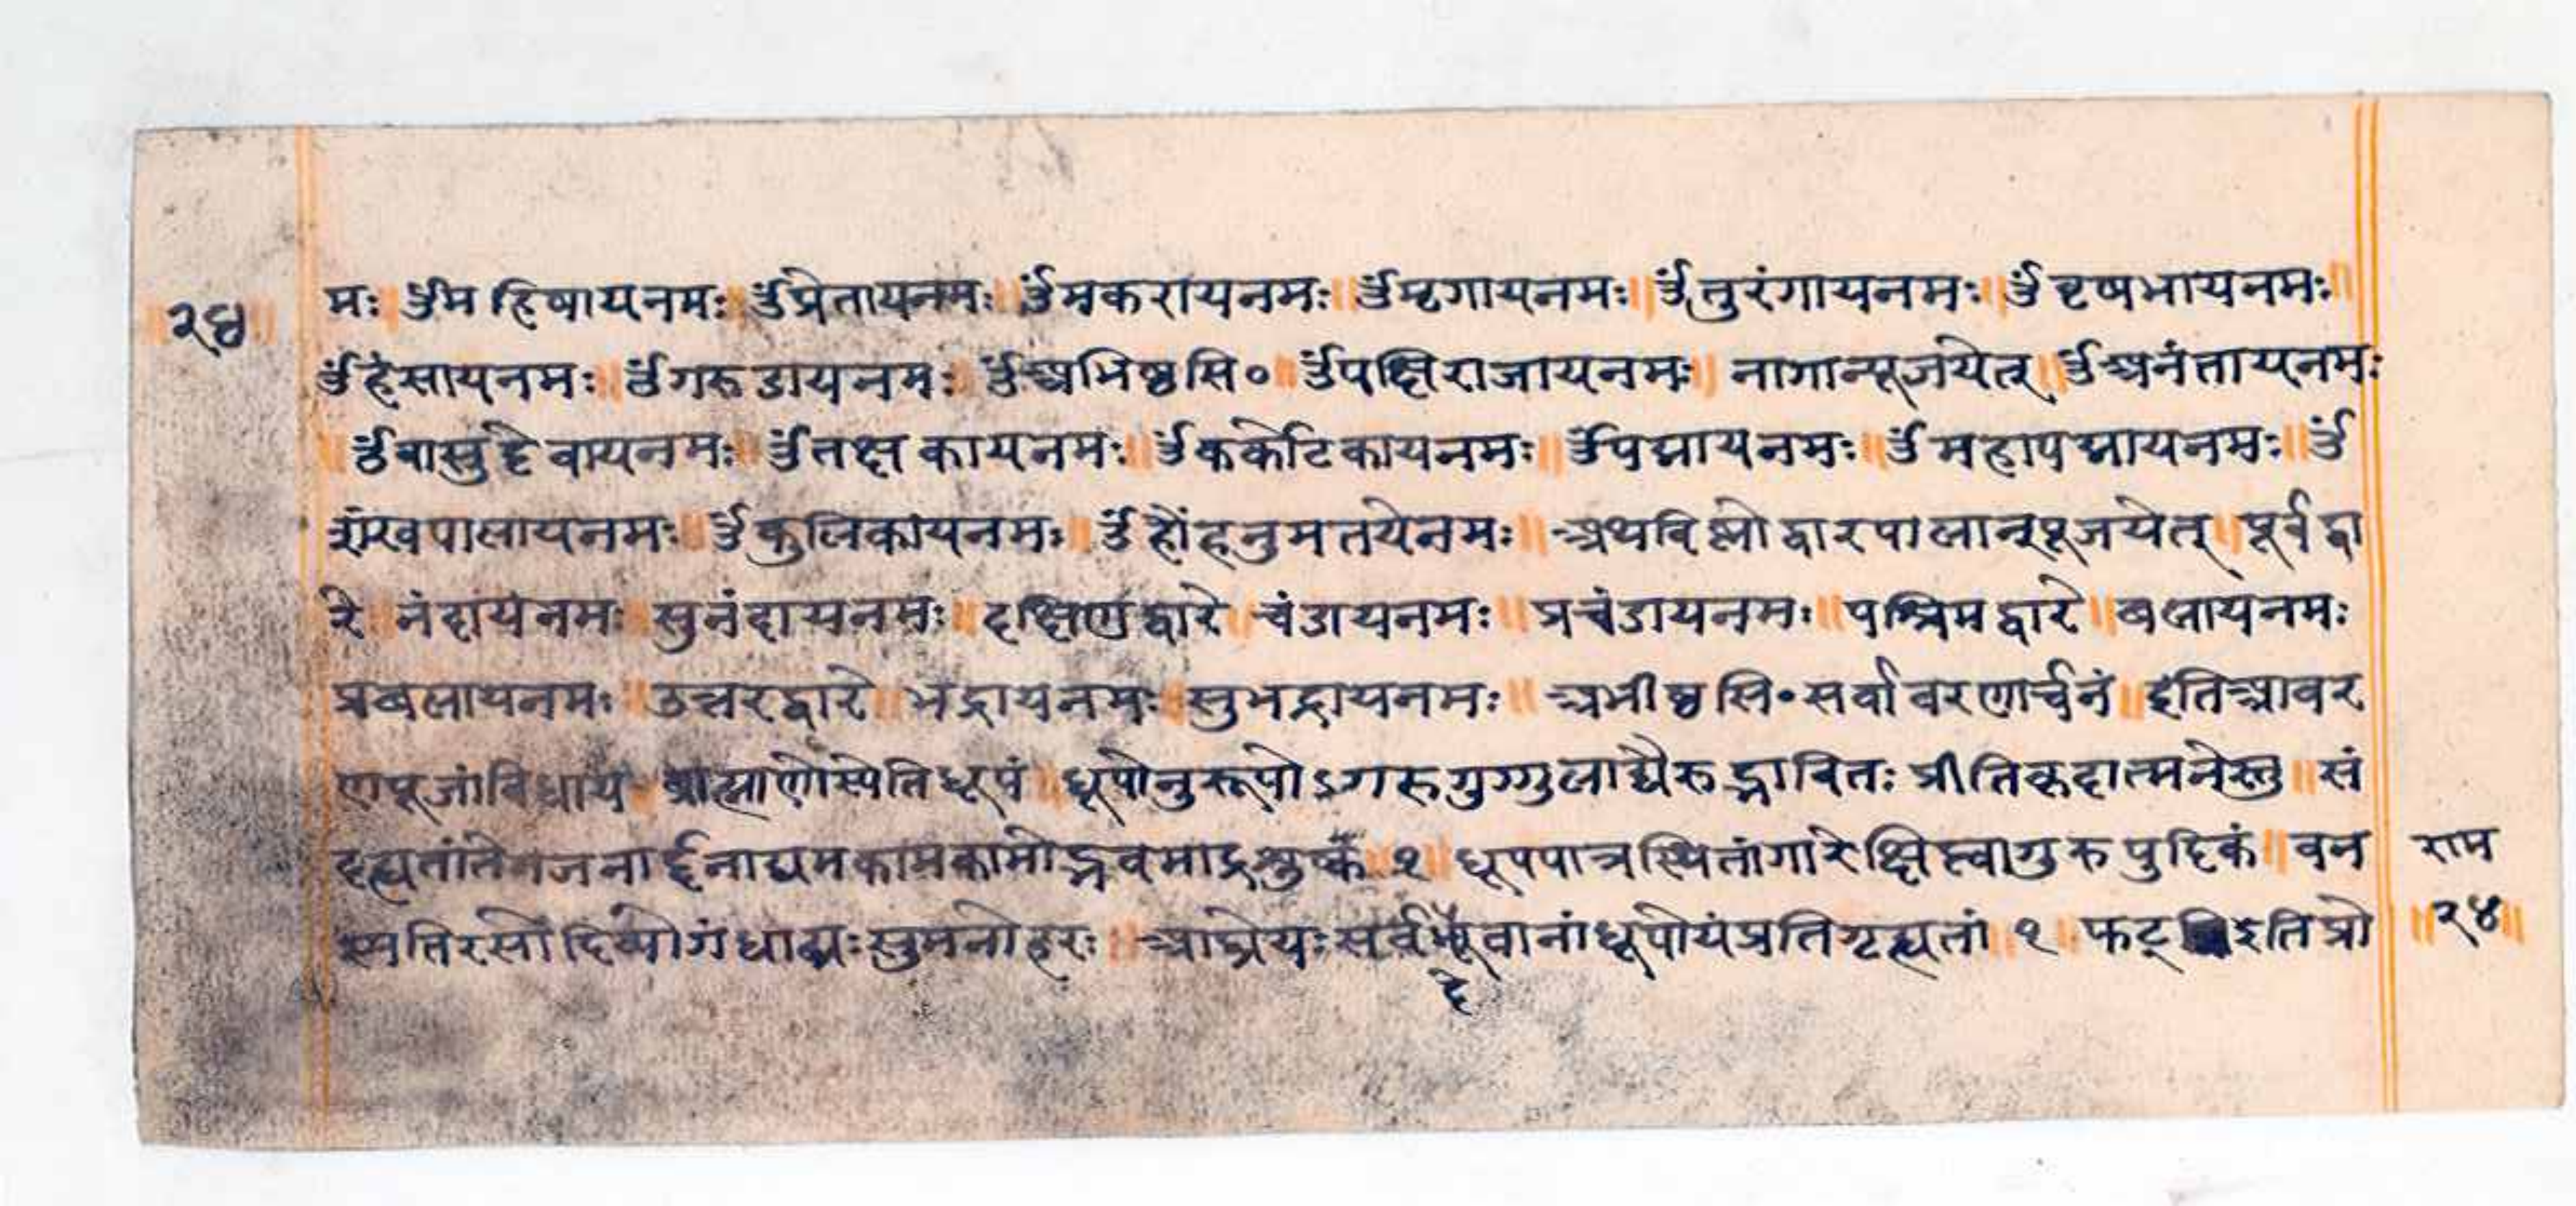 २४
मः ॥ ॐमहिषायनमः ॥ ॐप्रेतायनमः ॥ ॐमकरायनमः ॥ ॐमृगायनमः ॥ ॐतुरंगायनमः ॥ ॐवृषभायनमः ॥
ॐहंसायनमः ॥ ॐगरुडायनमः ॥ ॐअभिष्टसि० ॥ ॐपक्षिराजायनमः ॥ नागान्पूजयेत् ॥ ॐअनंतायनमः
॥ ॐवासुदेवायनमः ॥ ॐतक्षकायनमः ॥ ॐकर्कोटिकायनमः ॥ ॐपद्मायनमः ॥ ॐमहापद्मायनमः ॥ ॐ
शंखपालायनमः ॥ ॐकुलिकायनमः ॥ ॐहौंहनुमतयेनमः ॥ अथविष्णोद्वारपालान्पूजयेत् ॥ पूर्वद्वा
रे ॥ नंदायनमः ॥ सुनंदायनमः ॥ दक्षिणद्वारे ॥ चंडायनमः ॥ प्रचंडायनमः ॥ पश्चिमद्वारे ॥ बलायनमः
प्रबलायनमः ॥ उत्तरद्वारे ॥ भद्रायनमः ॥ सुभद्रायनमः ॥ अभीष्टसि०सर्वावरणार्चनं ॥ इतिआवर
णपूजांविधाय ॥ ब्राह्मणोस्येतिधूपं ॥ धूपोनुरूपोऽगरुगुग्गुलाद्यैरुद्भावितः प्रीतिकृदात्मनेस्तु ॥ सं
गृह्यतांतेनजनार्दनाद्यमकामकामोद्भवमाद्र १ ॥ धूपपात्रस्थितांगारेक्षिप्त्वागुरुपुदिकं ॥ वन
स्पतिरसोदिव्योगंधाढ्यःसुमनोहरः ॥ आघ्रेयःसर्वदेवानांधूपोयंप्रतिगृह्यतां ॥ १ ॥ फट् इतिप्रो
राम
॥२४॥